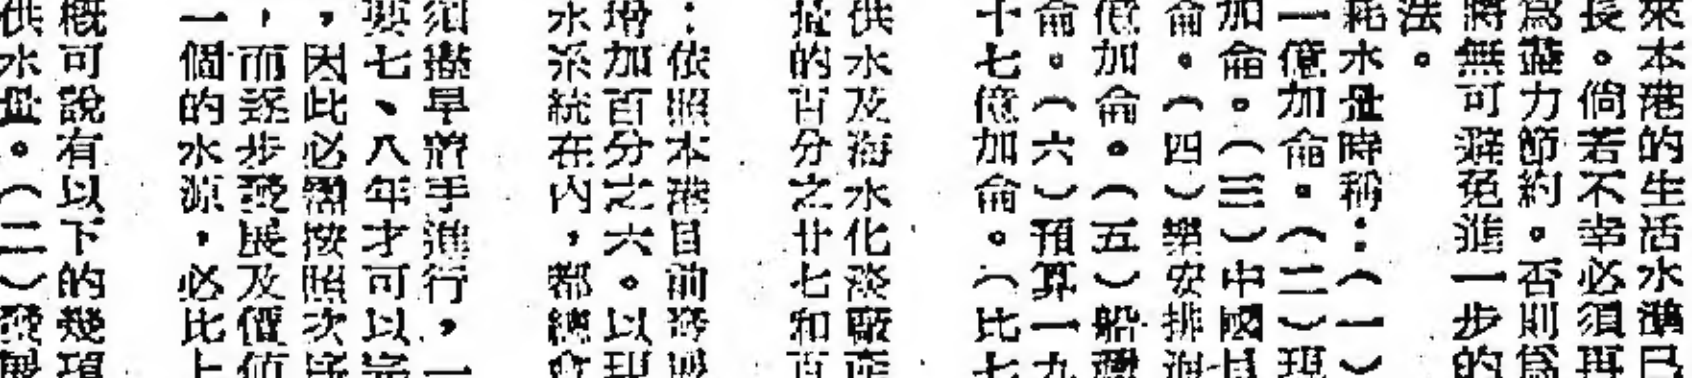 來本港的生活水準已
長。倘若不幸必須再
爲盡力節約。否則爲
將無可避免進一步的
法。
耗水量時稱：（一）
一億加侖。（二）現
加侖。（三）中國
侖。（四）樂安排海
億加侖。（五）船灣
侖。（六）預算一九
十七億加侖。（比七
供水及海水化淡廠
量的百分之廿七和百
：依照本港目前
增加百分之六。以現
水系統在內，都總會
須儘早着手進行，一
要七、八年才可以完
，因此必需按照次序
，而逐步發展及價值
一個的水源，必比上
概可說有以下的幾項
供水量。（二）發展